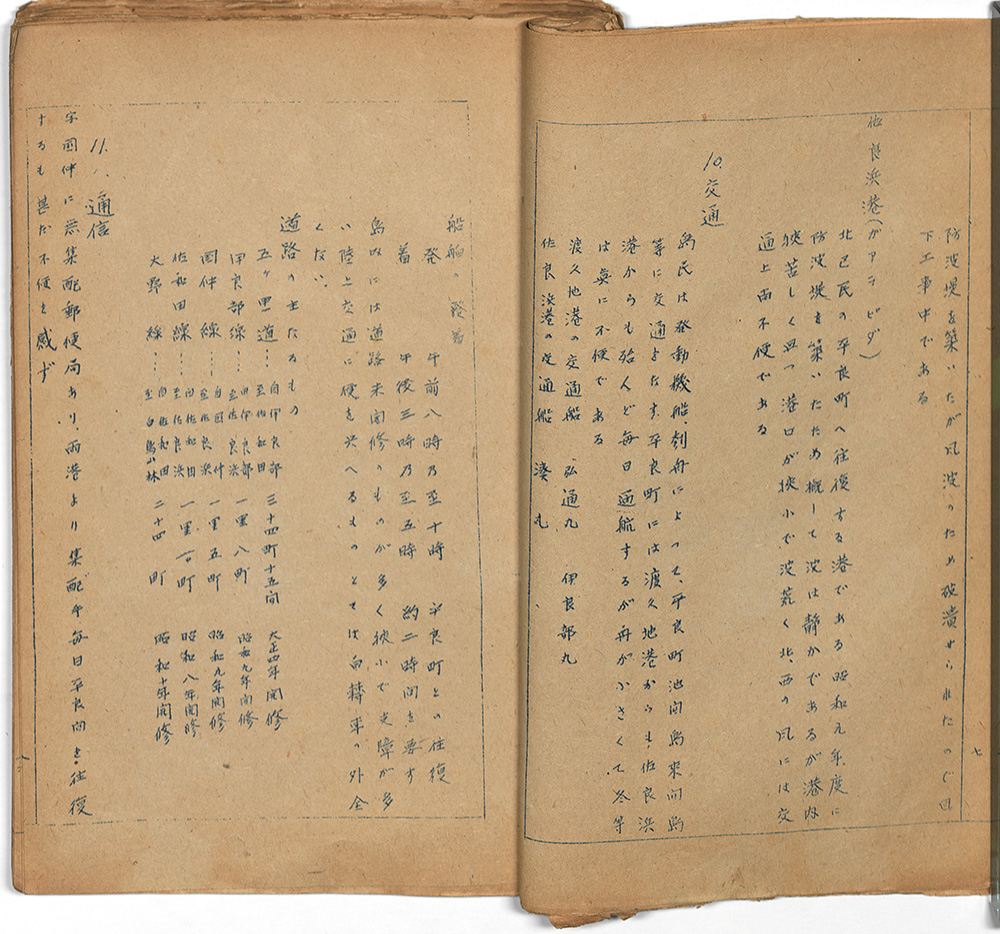 防波堤を築いたが風波のため破潰せられたので目
下工事中である
佐良浜港(がアラビダ)
北区民の平良町へ往復する港である昭和元年度に
防波堤を築いたため概して波は静かであるが港内
狭苦しく且つ港口が狭小で波荒く北、西の風には交
通上尚不便である
10. 交通
島民は発動機船、刳舟によって、平良町池間島来間島
等に交通をなす平良町には渡久地港からも、佐良浜
港からも殆んど毎日通航するが舟が小さくて冬等
は真に不便である
渡久地港の交通船 弘通丸 伊良部丸
佐良浜港の交通船 湊丸
七
船舶の発着
発 午前八時乃至十時 平良町との往復
着 午後三時乃至五時 約二時間を要す
島内には道路未開修のものが多く狭小で支障が多
い陸上交通に便を与へるものとては自転車の外全
くない
道路の主たるもの
五ヶ里道… 自伊良部 至佐和田 三十四町十五間 大正四年開修
伊良部線… 自伊良部 至佐良浜 一里八町 昭和九年開修
国仲線… 自国仲 至佐良浜 一里五町 昭和九年開修
佐和田線… 自佐和田 至佐良浜 一里一町 昭和八年開修
大野線… 自佐和田 至白鳥山林 二十四町 昭和十年開修
11. 八、通信
字国仲に無集配郵便局あり、両港より集配夫毎日平良間を往復
するも甚だ不便を感ず